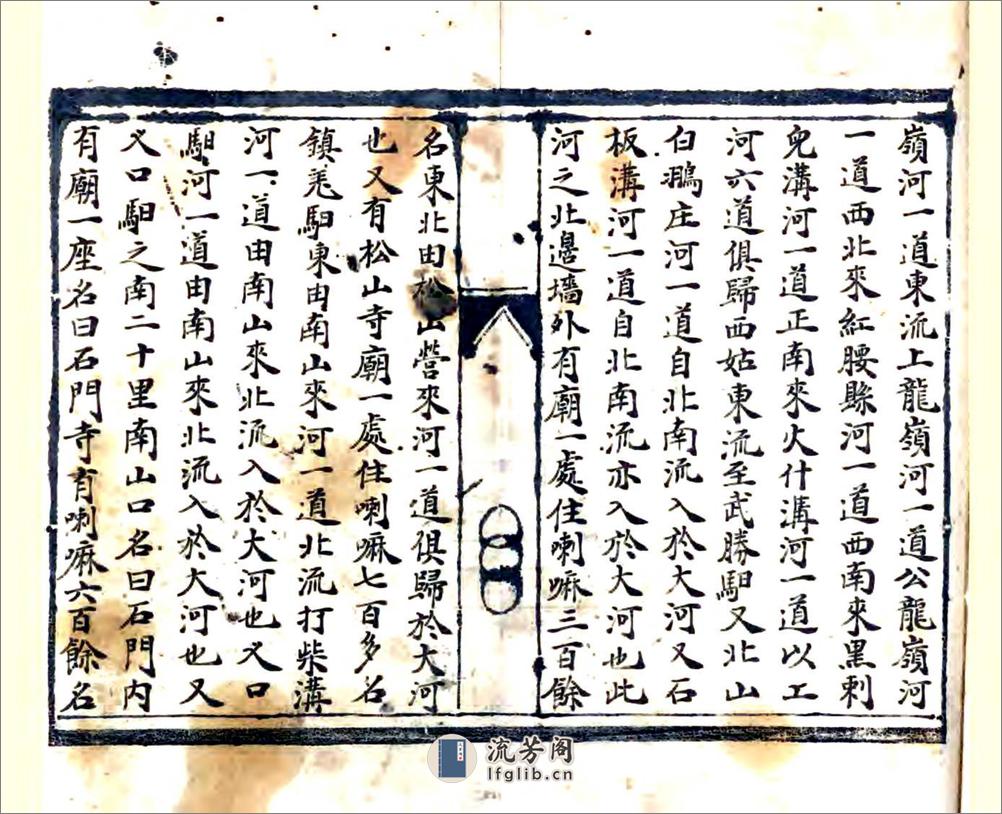 嶺河一道東流上龍嶺河一道公龍嶺河
一道西北來紅腰縣河一道西南來黑刺
兒溝河一道正南來火什溝河一道以工
河六道俱歸西姑東流至武勝馹又北山
白鵰庄河一道自北南流入於大河又石
板溝河一道自北南流亦入於大河也此
河之北邊墻外有廟一處住喇嘛三百餘
名東北由松山營來河一道俱歸於大河
也又有松山寺廟一處住喇嘛七百多名
鎮羌馹東由南山來河一道北流打柴溝
河一道由南山來北流入於大河也又口
馹河一道由南山來北流入於大河也又
乂口馹之南二十里南山口名曰石門內
有廟一座名曰石門寺有喇嘛六百餘名
流芳阁
lfglib.cn